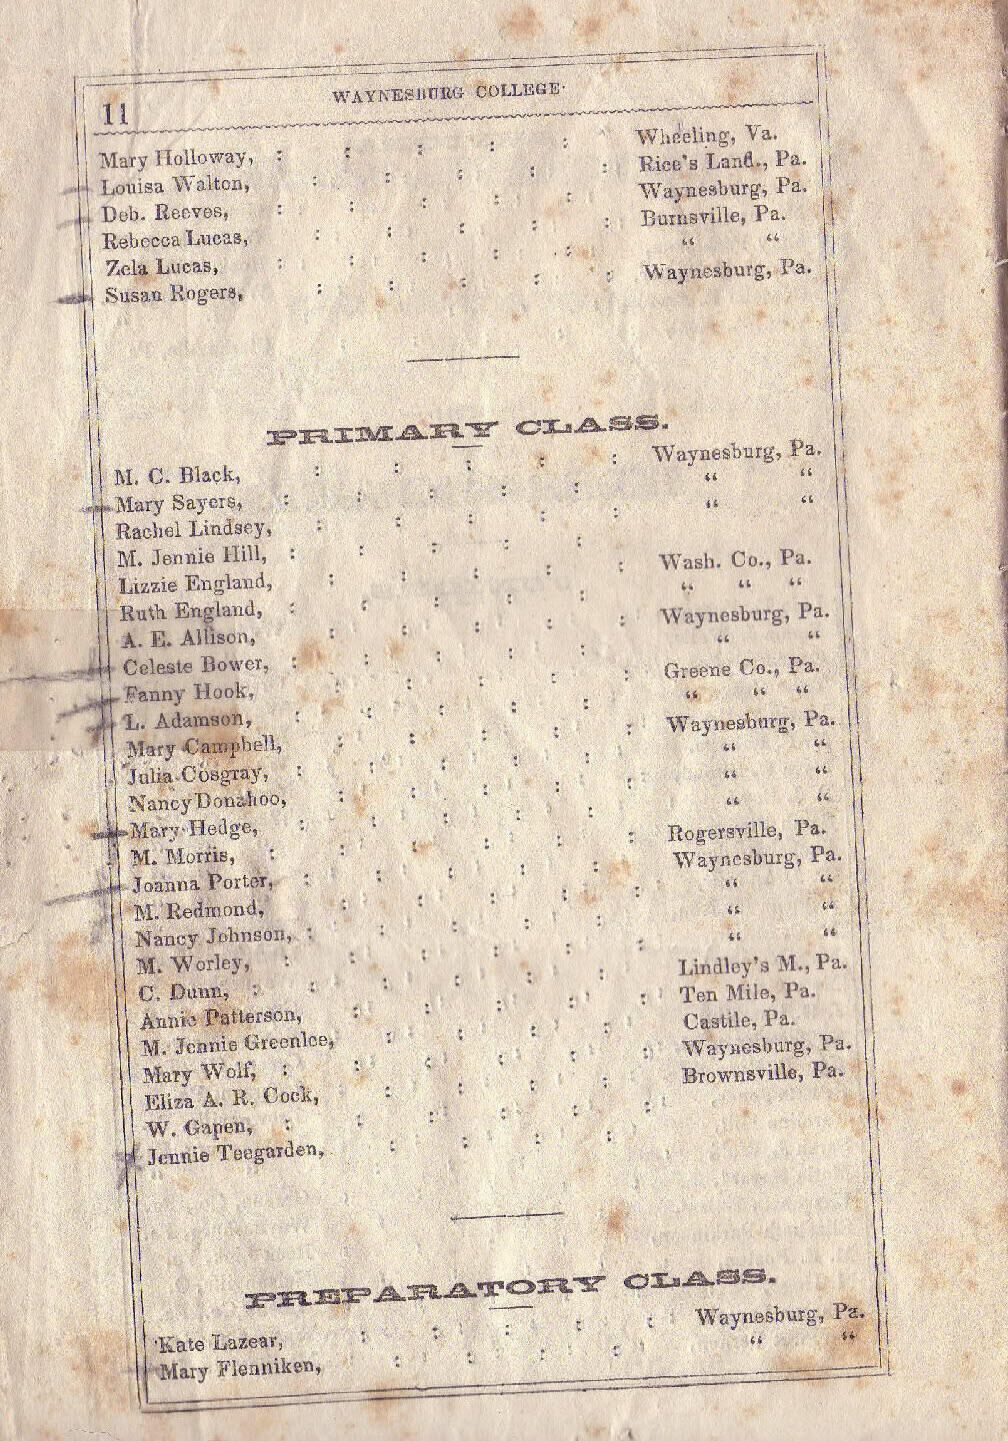 11 WAYNESBURG COLLEGE·
Mary Holloway, : : : : : Wheeling, Va.
Louisa Walton, : : : : : Rice's Land., Pa.
Deb. Reeves, : : : : : Waynesburg, Pa.
Rebecca Lucas, : : : : : Burnsville, Pa.
Zela Lucas, : : : : : “ “
Susan Rogers, : : : : : Waynesburg, Pa.
PRIMARY CLASS.
M. C. Black, : : : : : Waynesburg, Pa.
Mary Sayers, : : : : : “ “
Rachel Lindsey, : : : : : “ “
M. Jennie Hill, : : : : :
Lizzie England, : : : : : Wash. Co., Pa.
Ruth England, : : : : : “ “ “
A. E. Allison, : : : : : Waynesburg, Pa.
Celeste Bower, : : : : : “ “
Fanny Hook, : : : : : Greene Co., Pa.
L. Adamson, : : : : : “ “ “
Mary Campbell, : : : : : Waynesburg, Pa.
Julia Cosgray, : : : : : “ “
Nancy Donahoo, : : : : : “ “
Mary Hedge, : : : : : “ “
M. Morris, : : : : : Rogersville, Pa.
Joanna Porter, : : : : : Waynesburg, Pa.
M. Redmond, : : : : : “ “
Nancy Johnson, : : : : : “ “
M. Worley, : : : : : “ “
C. Dunn, : : : : : Lindley's M., Pa.
Annie Patterson, : : : : : Ten Mile, Pa.
M. Jennie Greenlee, : : : : Castile, Pa.
Mary Wolf, : : : : : Waynesburg, Pa.
Eliza A. R. Cock, : : : : Brownsville, Pa.
W. Gapen, : : : : : :
Jennie Teegarden, : : : :
PREPARATORY CLASS.
Kate Lazear, : : : : : Waynesburg, Pa.
Mary Flenniken, : : : : “ “